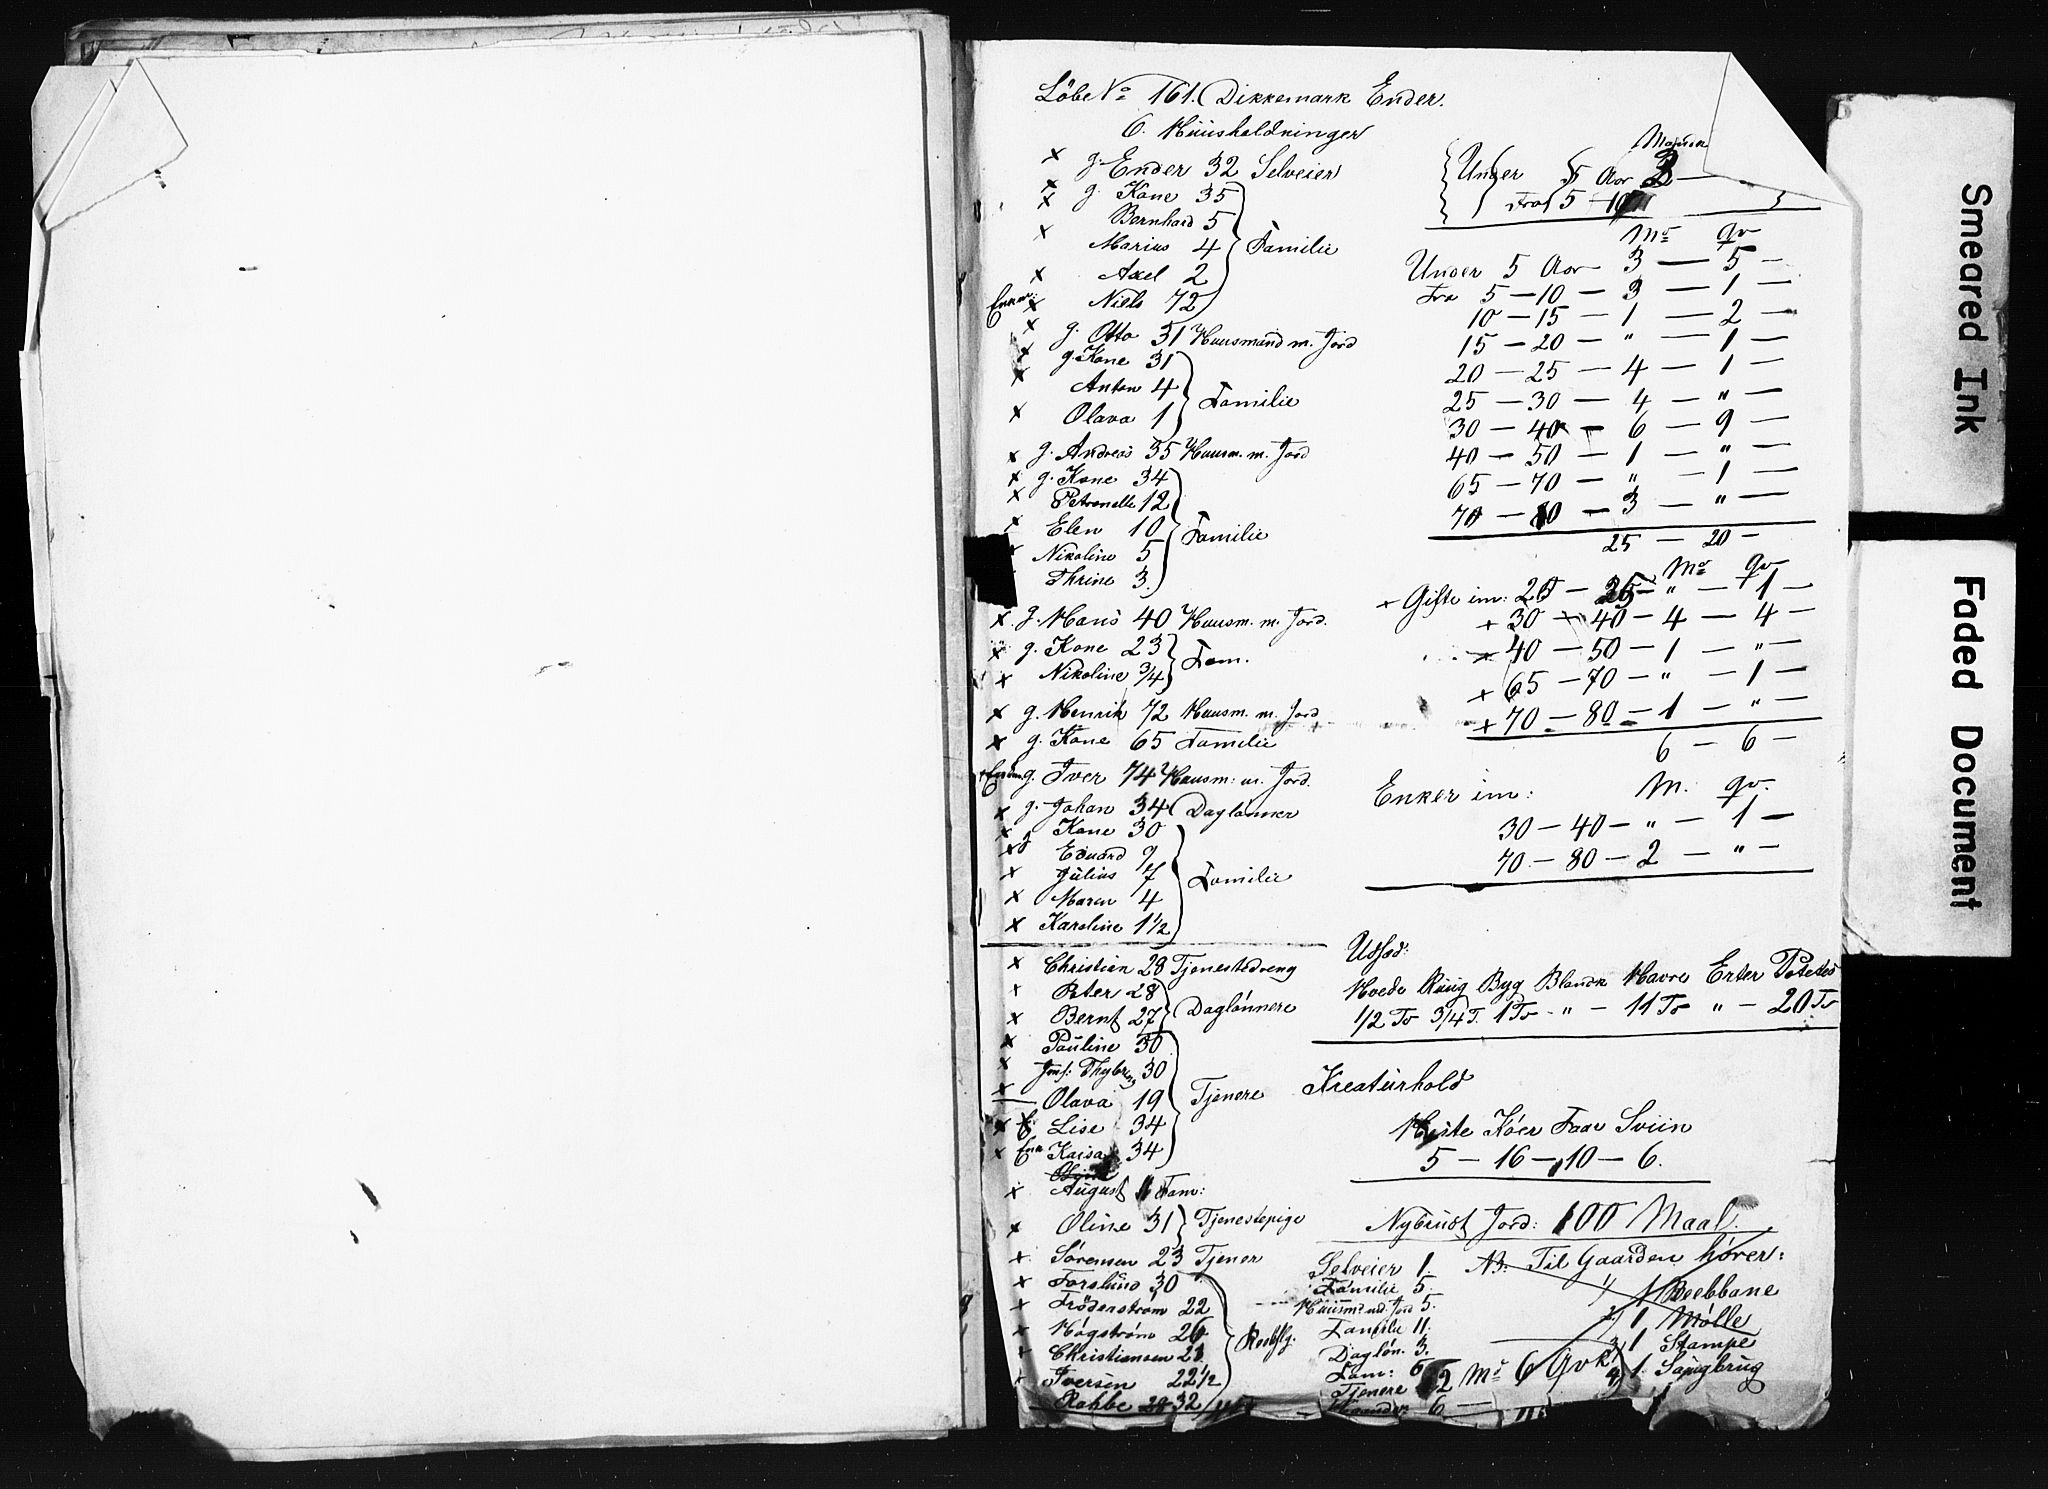 Löbe No 161. Dikkemark Ender.
6. Huusholdninger
x g. Ender 32 Selveier
x g. Kone 35
x Bernhard 5
x Marius 4 Familie
x Axel 2
Enkem: x Niels 72
x g. Otto 31 Huusmand m. Jord
x g. Kone 31
x Anton 4 Familie
x Olava 1
x g. Andreas 35 Huusm. m. Jord
x g. Kone 34
x Petronelle 12
x Elen 10 Familie
x Nikoline 5
Thrine 3.
x g. Hans 40 Huusm. m. Jord.
x g. Kone 23 Fam.
x Nikoline 3/4
x g. Henrik 72 Huusm. m. Jord
x g. Kone 65 Familie
g. Iver 74 Huusm: m. Jord.
x g. Johan 34 Daglönner
x Kone 30
x Eduard 9
x Julius 7 Familie
x Maren 4
x Karoline 1 1/2
x Christian 28 Tjenestedreng
x Peter 28
x Bernt 27 Daglönnere
x Pauline 30
x Jmf: 30
x Olava 19 Tjenere
x Lise 34
x Enk Kaisa 34
x August Fam:
x Oline 31 Tjenestepige
x Sörensen 23 Tjener
x Forslund 30
x Fröderström 22
x Högström 26
x Christiansen 28
x Iversen 22 1/2
Rabbe 28 32
Under 5 Aar
Fra 5 - 10
Mo qv
Under 5 Aar - 3 - 5 -
Fra 5 - 10 - 3 - 1 -
10 - 15 - 1 - 2 -
15 - 20 - " - 1 -
20 - 25 - 4 - 1 -
25 - 30 - 4 - " -
30 - 40 - 6 - 9 -
40 - 50 - 1 - " -
65 - 70 - " - 1 -
70 - 80 - 3 - " -
25 - 20 -
Mo qv
+ Gifte im: 20 - 25 - " - 1 -
+ 30 - 40 - 4 - 4 -
+ 40 - 50 - 1 - " -
+ 65 - 70 - " - 1 -
+ 70 - 80 - 1 - " -
6 - 6 -
Enker im: M. qv.
30 - 40 - " - 1 -
70 - 80 - 2 - " -
Udsæd:
Hvede Ruug Byg Blandk Havre Erter Potetes
1/2 To 3/4 T. 1 To - " - 11 To " - 20 To
Kreaturhold
Heste Köer Faar Sviin
5 - 16 - 10 - 6.
Nybrudt Jord: 100 Maal.
NB: Til Gaarden hörer:
1) 1 Reebbane
2) 1 Mölle
3) 1 Stampe
4) 1. Saugbrug
Selveier 1.
Familie 5.
Huusm: md. Jord 5.
Familie 11.
Daglön. 3.
Fam: 6
Tjenere 2 Mo 6 Qvk
6 -
Smeared Ink
Faded Document